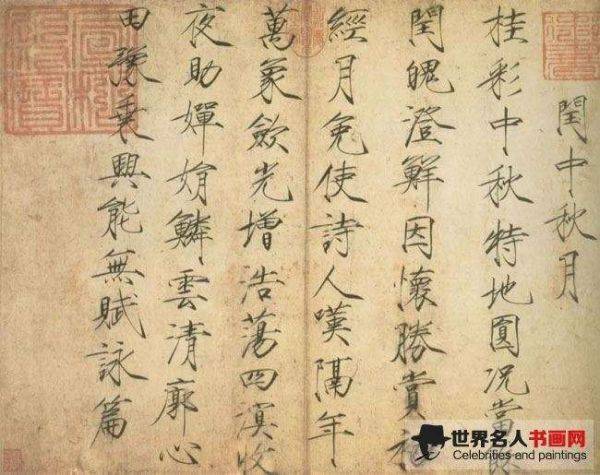 閏中秋月
桂彩中秋特地圓况當
閏魄澄鮮因懷勝賞初
經月免使詩人嘆隔年
萬象歛光增浩蕩四溟收
夜助嬋娟鱗雲清廓心
田豫乘興能無賦詠篇
世界名人书画网
Celebrities and paintings